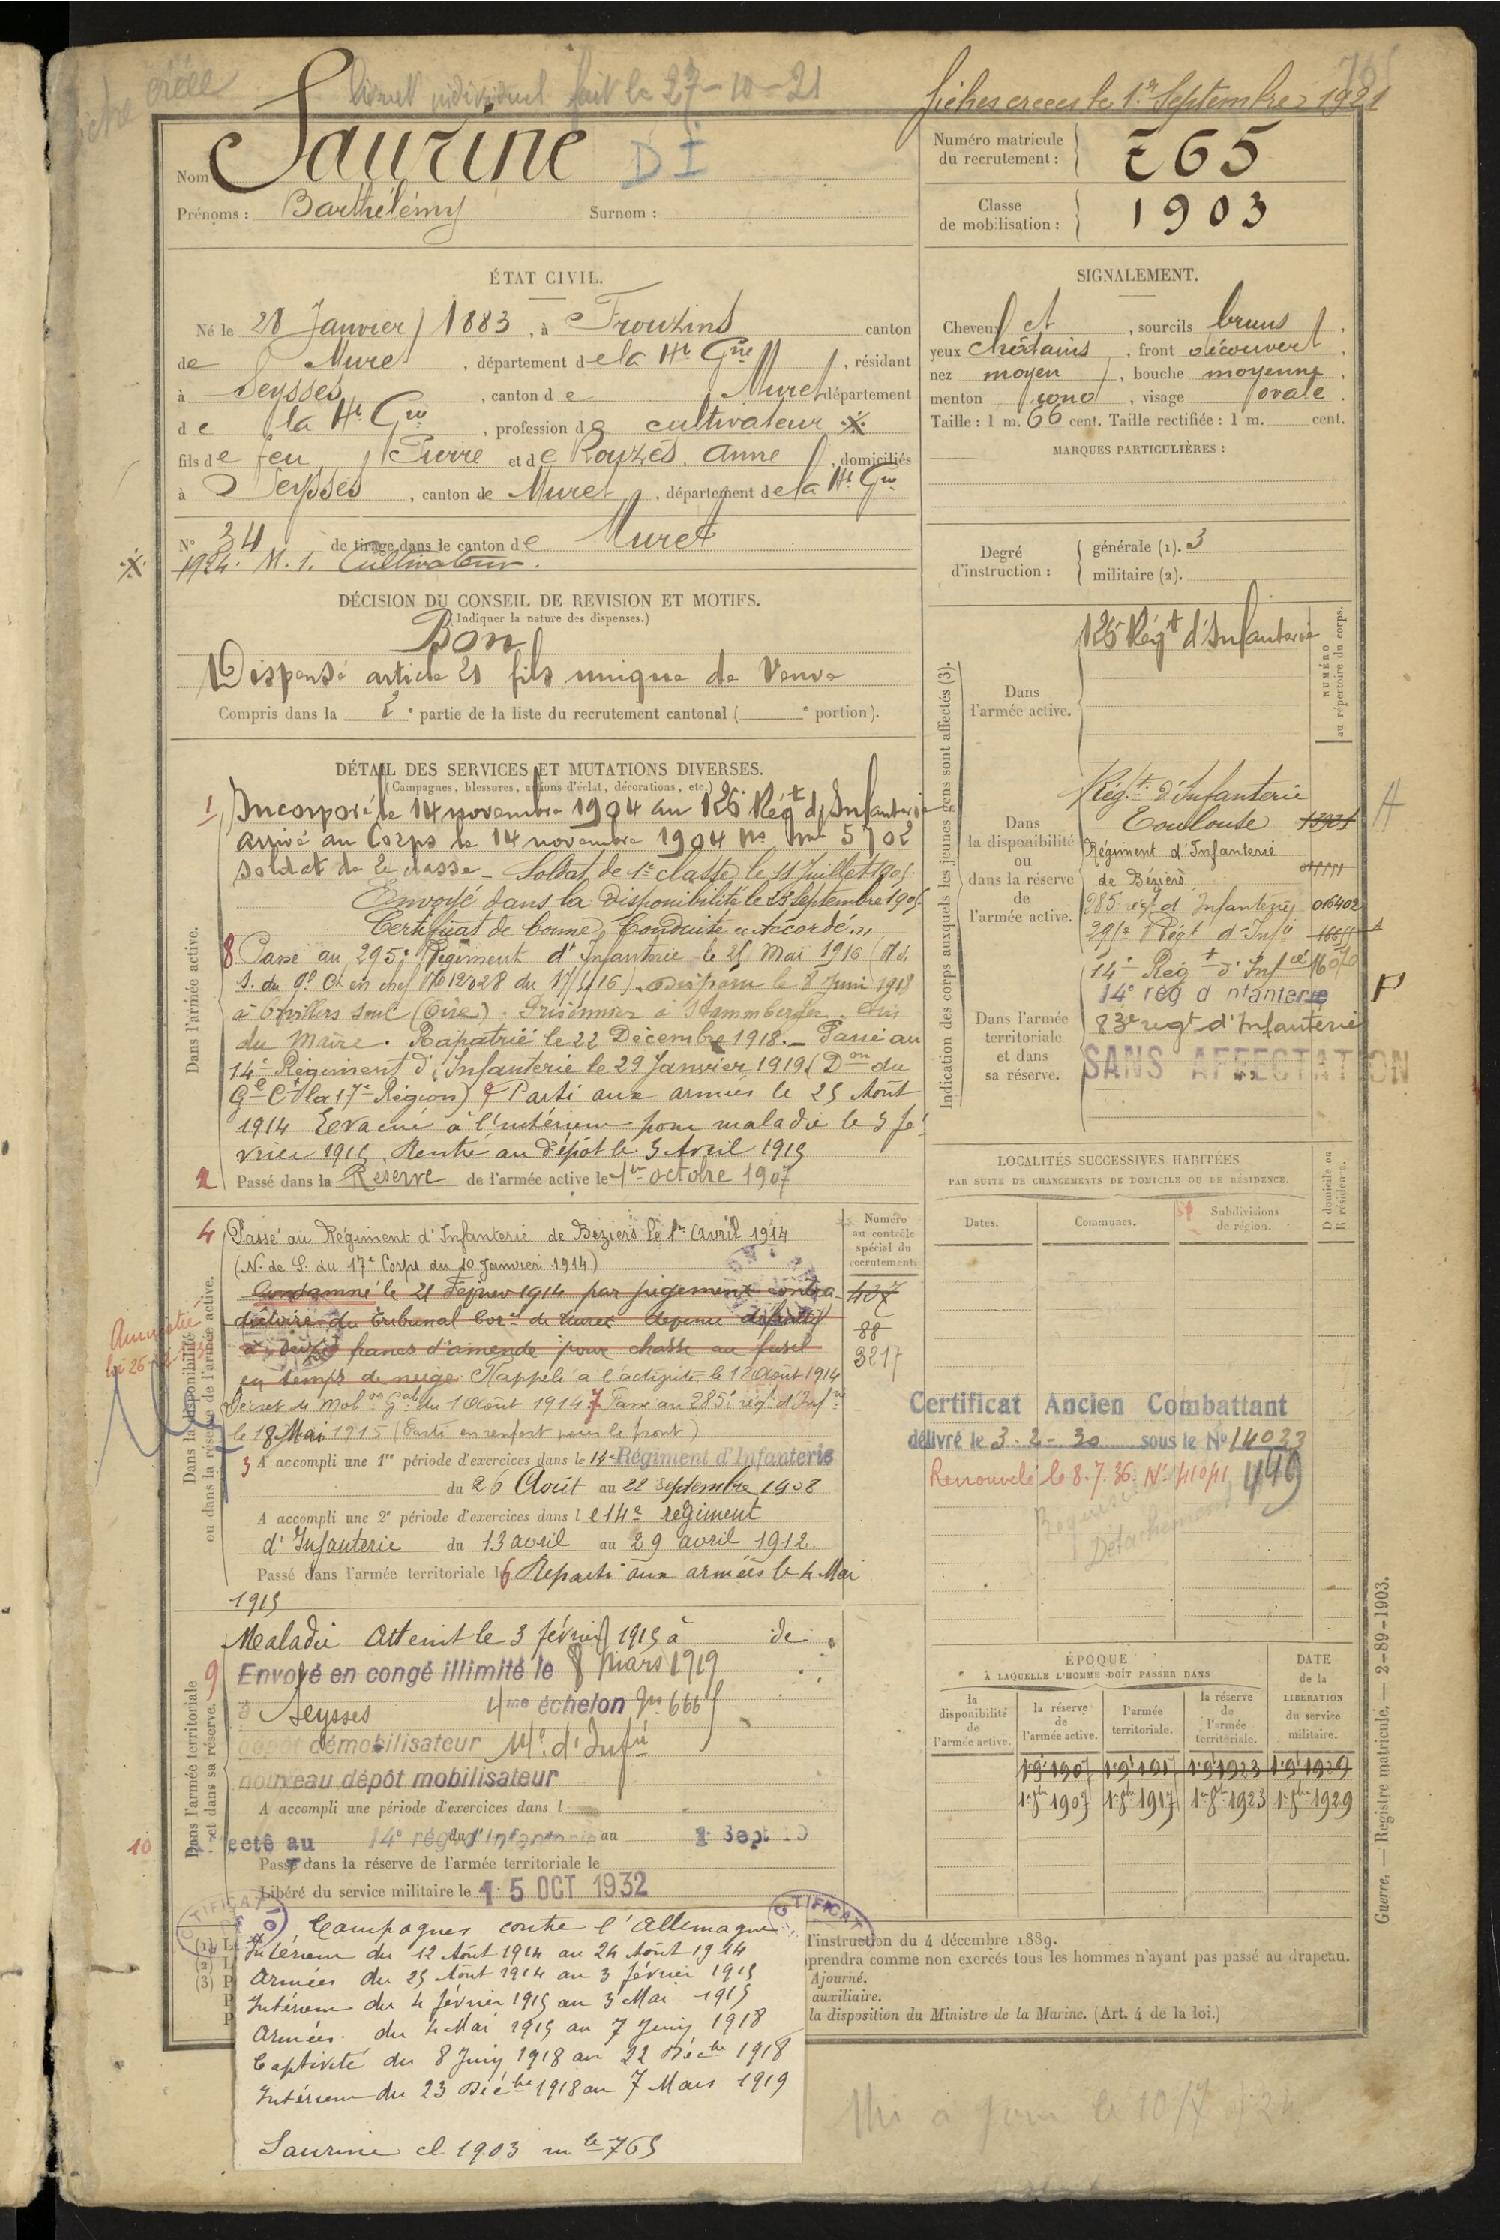 Livret individuel fait le 27-10-21
fiches creees le 1er Septembre 1921
765
Nom Saurine D I
Prénoms : Barthélémy Surnom :
Numéro matricule du recrutement : 765
Classe de mobilisation : 1903
ÉTAT CIVIL.
Né le 28 Janvier 1883, à Frouzins canton
de Muret, département de la Hte Gne, résidant
à Seysses, canton de Muret département
de la Hte Gne, profession de cultivateur
fils de feu Pierre et de Rouzès Anne, domiciliés
à Seysses, canton de Muret, département de la Hte Gne
N° 34 de tirage dans le canton de Muret
1924. M. 1. Cultivateur.
SIGNALEMENT.
Cheveux et, sourcils bruns,
yeux châtains, front découvert,
nez moyen, bouche moyenne,
menton rond, visage ovale.
Taille : 1 m. 66 cent. Taille rectifiée : 1 m. cent.
MARQUES PARTICULIÈRES :
Degré d'instruction : générale (1). 3
militaire (2).
DÉCISION DU CONSEIL DE REVISION ET MOTIFS.
(Indiquer la nature des dispenses.)
Bon
Dispensé article 21 fils unique de Veuve
Compris dans la 2e partie de la liste du recrutement cantonal ( e portion).
DÉTAIL DES SERVICES ET MUTATIONS DIVERSES.
(Campagnes, blessures, actions d'éclat, décorations, etc.)
1 Incorporé le 14 novembre 1904 au 126e Régt d'Infanterie
arrivé au Corps le 14 novembre 1904 No mle 5702
soldat de 2e classe - Soldat de 1e classe le 11 Juillet 1905
Envoyé dans la disponibilité le 23 Septembre 1905
Certificat de bonne Conduite "Accordé"
8 Passé au 295e Régiment d'Infanterie le 25 Mai 1916
Disparu le 8 Juin 1918
à Orvillers Sorel (Oise). Prisonnier à Stammberger. Avis
du Maire. Rapatrié le 22 Décembre 1918. - Passé au
14e Régiment d'Infanterie le 29 Janvier 1919 (Don du
Gal Ct la 17e Région) Parti aux armées le 25 Août
1914 Evacué à l'intérieur pour maladie le 3 fé-
vrier 1915. Rentré au dépôt le 3 Avril 1915
2 Passé dans la Réserve de l'armée active le 1er octobre 1907
Dans l'armée active.
Dans la disponibilité ou dans la réserve de l'armée active.
Dans l'armée territoriale et dans sa réserve.
4 Passé au Régiment d'Infanterie de Béziers le 1er Avril 1914
(N. de S. du 17e Corps du 10 Janvier 1914)
Condamné le 21 Février 1914 par jugement contra-
dictoire du tribunal Corel de Muret devenu définitif
à seize francs d'amende pour chasse au fusil
en temps de neige. Rappelé à l'activité le 12 Août 1914
Décret de Mobon Gale du 1 Août 1914 7 Passé au 285e régt d'Infie
le 18 Mai 1915 (Parti en renfort pour le front)
3 A accompli une 1re période d'exercices dans le 14e Régiment d'Infanterie
du 26 Août au 22 septembre 1908
A accompli une 2e période d'exercices dans le 14e régiment
d'Infanterie du 13 avril au 29 avril 1912
Passé dans l'armée territoriale l 6 Reparti aux armées le 4 Mai
1915
Amnistie
Numéro au contrôle spécial du recrutement
407
88
3217
Maladie Atteint le 3 février 1915 à de
9 Envoyé en congé illimité le 8 mars 1919
à Seysses 4me échelon No 666
dépôt démobilisateur 14e d'Infie
nouveau dépôt mobilisateur
A accompli une période d'exercices dans l
10 ecté au 14e rég d'Infanterie au Sept
Passé dans la réserve de l'armée territoriale le
Libéré du service militaire le 15 OCT 1932
Indication des corps auxquels les jeunes gens sont affectés (3).
NUMÉRO au répertoire du corps.
Dans l'armée active.
126 Régt d'Infanterie
Dans la disponibilité ou dans la réserve de l'armée active.
Régt d'Infanterie
Toulouse
Régiment d'Infanterie
de Béziers
285 régt d'Infanterie 06402
295e Régt d'Infie
14e Régt d'Infie
14e rég d'nfanterie
Dans l'armée territoriale et dans sa réserve.
83e régt d'Infanterie
SANS AFFECTATION
LOCALITÉS SUCCESSIVES HABITÉES
PAR SUITE DE CHANGEMENTS DE DOMICILE OU DE RÉSIDENCE.
Dates. Communes. Subdivisions de région. D domicile ou R résidence.
Certificat Ancien Combattant
délivré le 3-2-30 sous le No 14023
Renouvelé le 8.7.36. No 41041 449
Détachement
ÉPOQUE À LAQUELLE L'HOMME DOIT PASSER DANS
DATE de la LIBÉRATION du service militaire.
la disponibilité de l'armée active. la réserve de l'armée active. l'armée territoriale. la réserve de l'armée territoriale.
1.9.1907 1.9.1917 1.9.1923 1.9.1929
1er 8bre 1907 1er 8bre 1917 1er 8bre 1923 1er 8bre 1929
Guerre. — Registre matricule. — 2-89-1903.
Campagnes contre l'Allemagne
Intérieur du 12 Août 1914 au 24 Août 1914
Armées du 25 Août 1914 au 3 février 1915
Intérieur du 4 février 1915 au 3 Mai 1915
Armées du 4 Mai 1915 au 7 Juin 1918
Captivité du 8 Juin 1918 au 22 Décbre 1918
Intérieur du 23 Décbre 1918 au 7 Mars 1919
Saurine cl 1903 mle 765
l'instruction du 4 décembre 1889.
prendra comme non exercés tous les hommes n'ayant pas passé au drapeau.
Ajourné.
auxiliaire.
la disposition du Ministre de la Marine. (Art. 4 de la loi.)
Mis à jour le 10/7